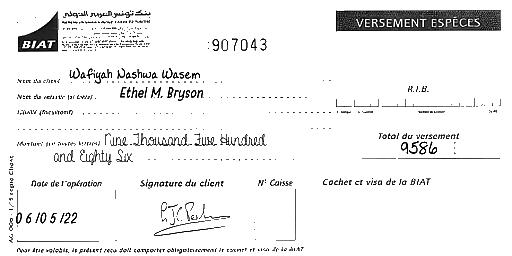 بنك تونس العربي الدولي
BIAT
VERSEMENT ESPÈCES
:907043
Nom du client Wafiyah Nashwa Wasem
Nom du remettant (si tiers) : Ethel M. Bryson
R.I.B.
Libellé (facultatif)
Montant (en toutes lettres) Nine Thousand Five Hundred
and Eighty Six
Total du versement
9586
Date de l'opération
Signature du client
N° Caisse
Cachet et visa de la BIAT
06/05/22
AG 006 - 1/5 copie Client
Pour être valable, le présent reçu doit comporter obligatoirement le cachet et visa de la BIAT